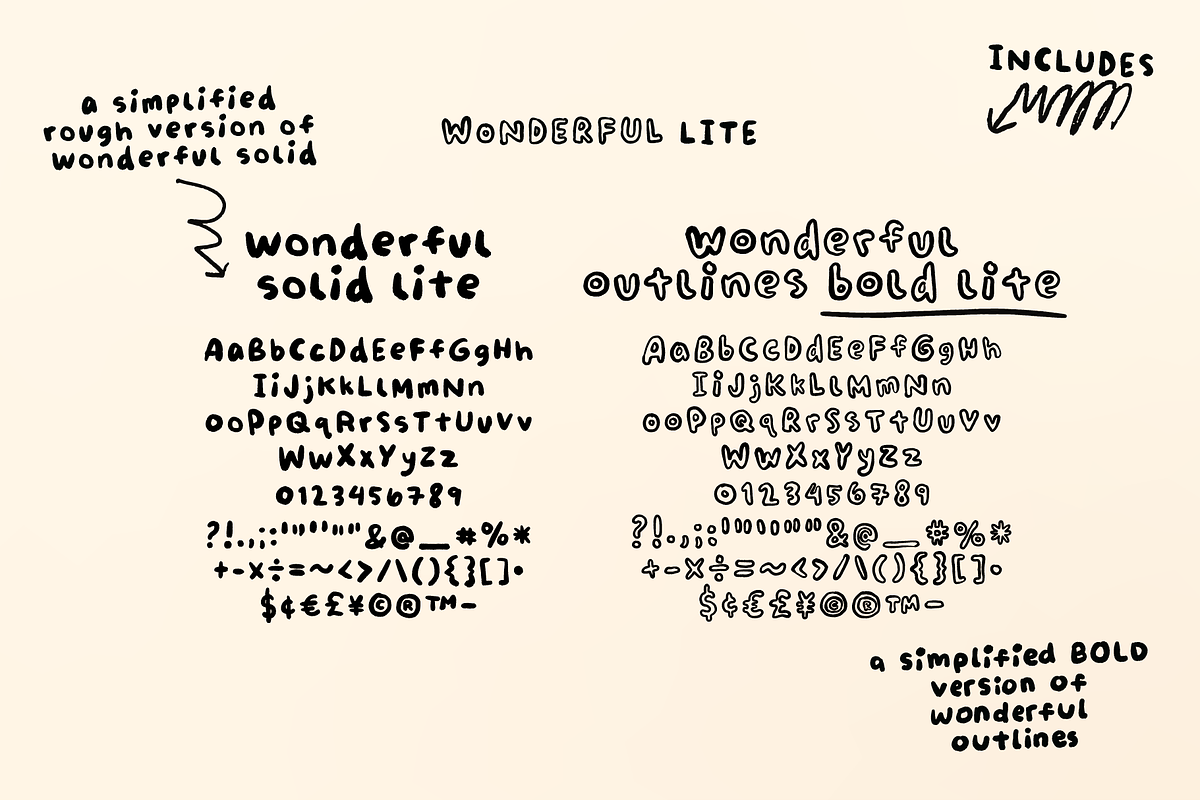 INCLUDES
a simplified
rough version of
wonderful solid
WONDERFUL LITE
wonderful
solid lite
AaBbCcDdEeFfGgHh
IiJjKkLlMmNn
OoPpQqRrSsTtUuVv
WwXxYyZz
0123456789
?!.,;:'"‘’“”&@_#%*
+-×÷=~<>/\(){}[]•
$¢€£¥©®™-
wonderful
outlines bold lite
AaBbCcDdEeFfGgHh
IiJjKkLlMmNn
OoPpQqRrSsTtUuVv
WwXxYyZz
0123456789
?!.,;:'"‘’“”&@_#%*
+-×÷=~<>/\(){}[]•
$¢€£¥©®™-
a simplified BOLD
version of
wonderful
outlines